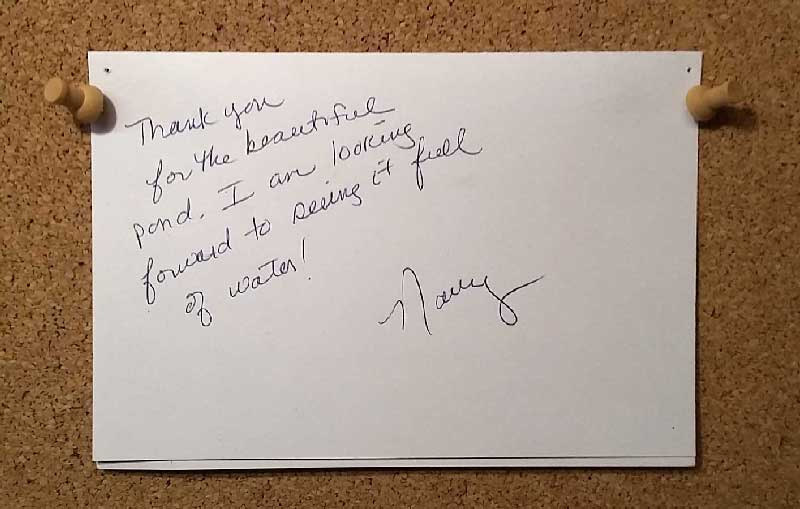 Thank you
for the beautiful
pond. I am looking
forward to seeing it full
of water!
Nancy